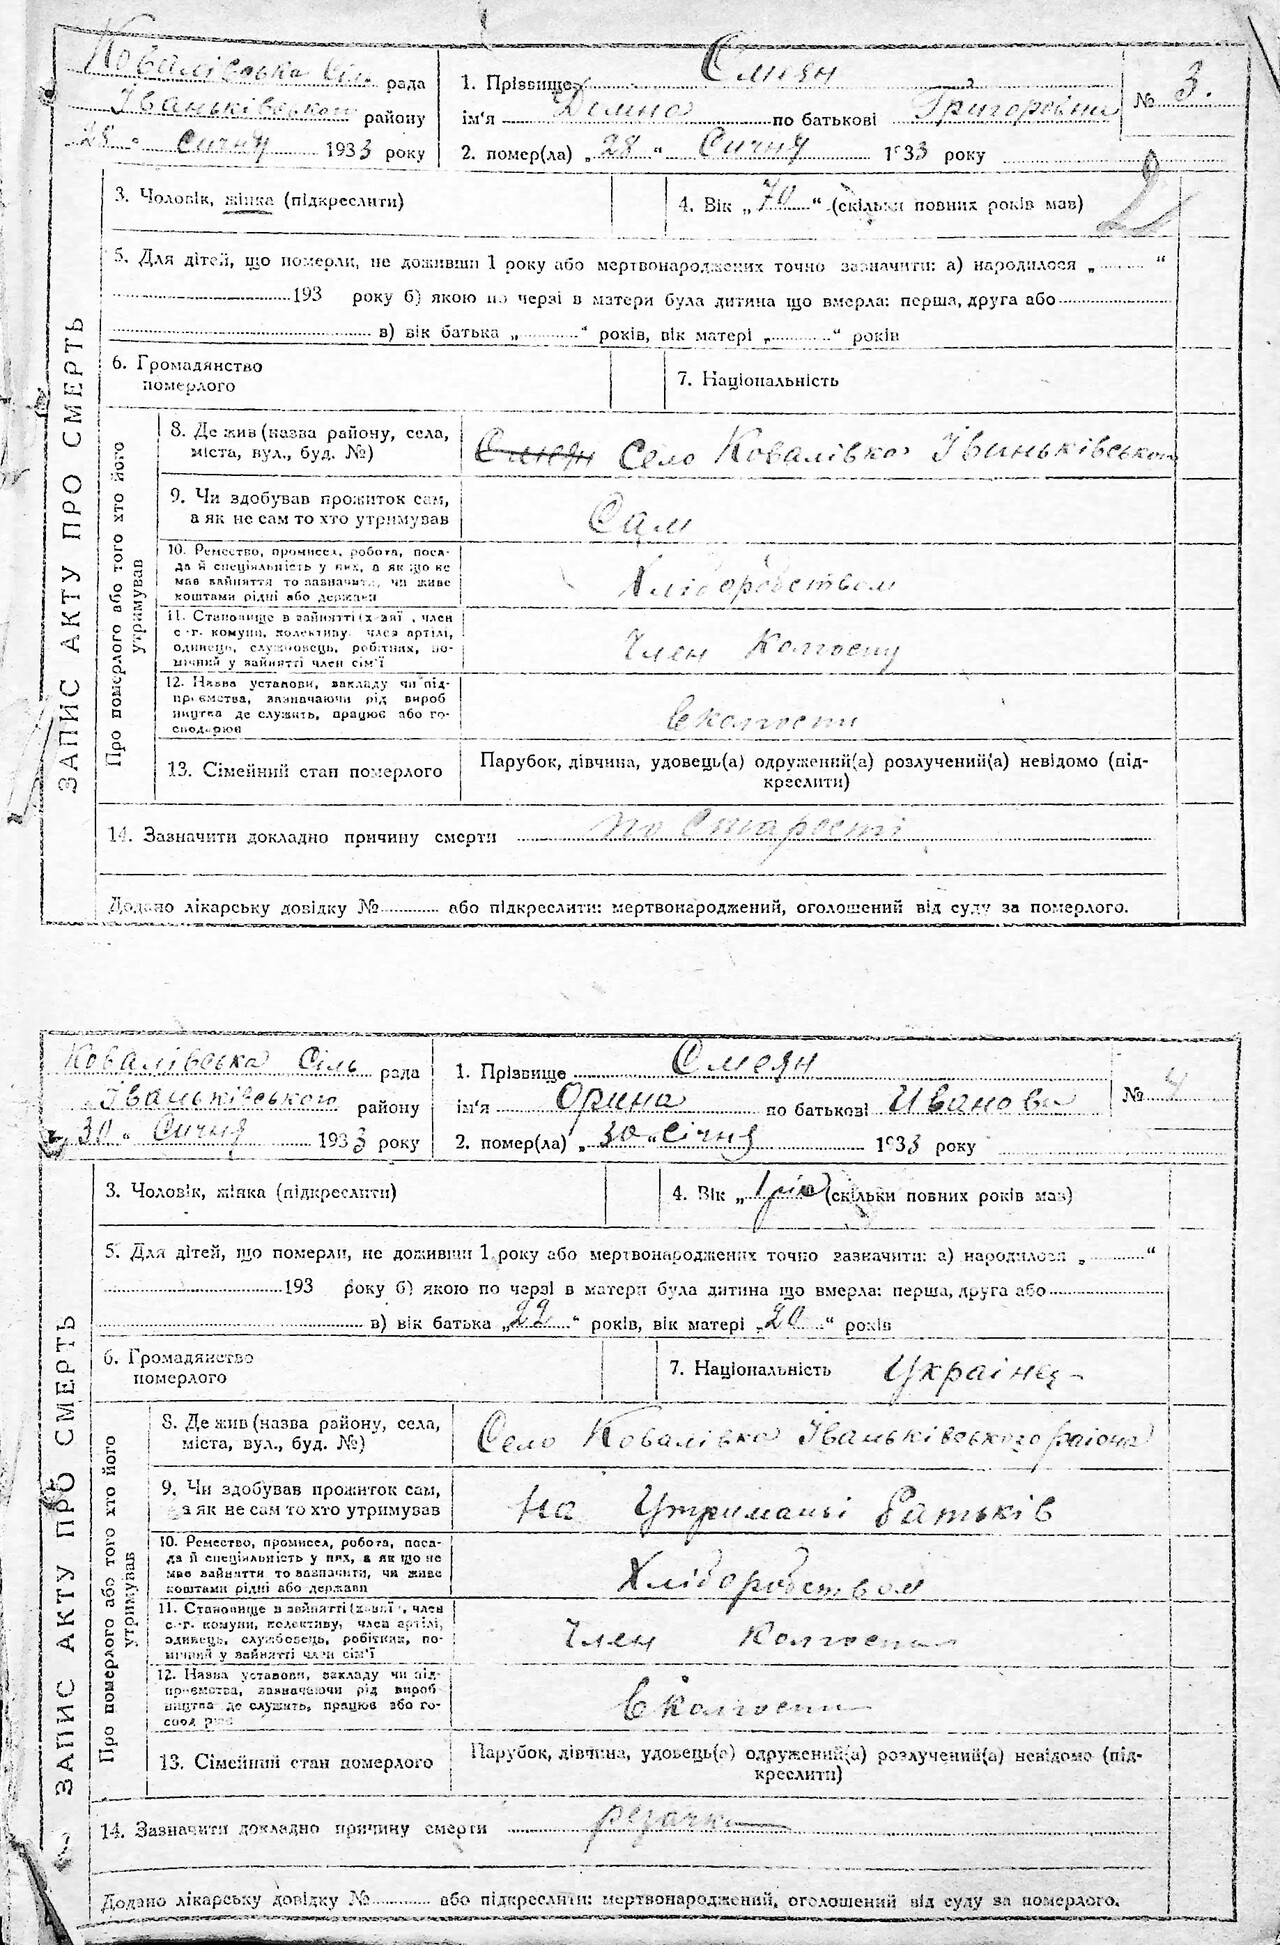 ЗАПИС АКТУ ПРО СМЕРТЬ
Ковалівська Сіль рада
Іваньківського району
28 " Сичня 1933 року
1. Прізвище Смеян
ім'я по батькові
№ 3.
2. помер(ла) „ 28 “ Сичня 1933 року
2
3. Чоловік, жінка (підкреслити)
4. Вік „ 70 “ (скільки повних років мав)
5. Для дітей, що померли, не доживши 1 року або мертвонароджених точно зазначити: а) народилося „ “
193 року б) якою по черзі в матери була дитина що вмерла: перша, друга або
в) вік батька „ “ років, вік матері „ “ років
6. Громадянство
померлого
7. Національність
Про померлого або того хто його
утримував
8. Де жив (назва району, села,
міста, вул., буд. №)
Смеян Село Ковалівка Іваньківського
9. Чи здобував прожиток сам,
а як не сам то хто утримував
Сам
10. Ремество, промисел, робота, поса-
да й спеціяльність у них, а як що не
має зайняття то зазначити, чи живе
коштами рідні або держави
Хліборобством
11. Становище в зайнятті (хазяї , член
с-г. комуни, колективу, член артілі,
одинець, службовець, робітник, по-
мічний у зайнятті член сім'ї
Член Колгоспу
12. Назва установи, закладу чи під-
приємства, зазначаючи рід вироб
ництва де служить, працює або го-
сподарює
Вколгоспи
13. Сімейний стан померлого
Парубок, дівчина, удовець(а) одружений(а) розлучений(а) невідомо (під-
креслити)
14. Зазначити докладно причину смерти по Старості
Додано лікарську довідку № або підкреслити: мертвонароджений, оголошений від суду за померлого.
ЗАПИС АКТУ ПРО СМЕРТЬ
Ковалівська Сіль рада
Іваньківського району
30 " Сичня 1933 року
1. Прізвище Смеян
ім'я Орина по батькові Иванова
№ 4
2. помер(ла) „ 30 “ Січня 1933 року
3. Чоловік, жінка (підкреслити)
4. Вік „ 1 рік (скільки повних років мав)
5. Для дітей, що померли, не доживши 1 року або мертвонароджених точно зазначити: а) народилося „ “
193 року б) якою по черзі в матери була дитина що вмерла: перша, друга або
в) вік батька „ 22 “ років, вік матері „ 20 “ років
6. Громадянство
померлого
7. Національність Українец
Про померлого або того хто його
утримував
8. Де жив (назва району, села,
міста, вул., буд. №)
Село Ковалівка Іваньківського раіона
9. Чи здобував прожиток сам,
а як не сам то хто утримував
На Утриманьі Батьків
10. Ремество, промисел, робота, поса-
да й спеціяльність у них, а як що не
має зайняття то зазначити, чи живе
коштами рідні або держави
Хліборобством
11. Становище в зайнятті (хазяї , член
с-г. комуни, колективу, член артілі,
одинець, службовець, робітник, по-
мічний у зайнятті член сім'ї
Член Колгоспа
12. Назва установи, закладу чи під-
приємства, зазначаючи рід вироб
ництва де служить, працює або го-
сподарює
Вколгоспи
13. Сімейний стан померлого
Парубок, дівчина, удовець(а) одружений(а) розлучений(а) невідомо (під-
креслити)
14. Зазначити докладно причину смерти резачка
Додано лікарську довідку № або підкреслити: мертвонароджений, оголошений від суду за померлого.